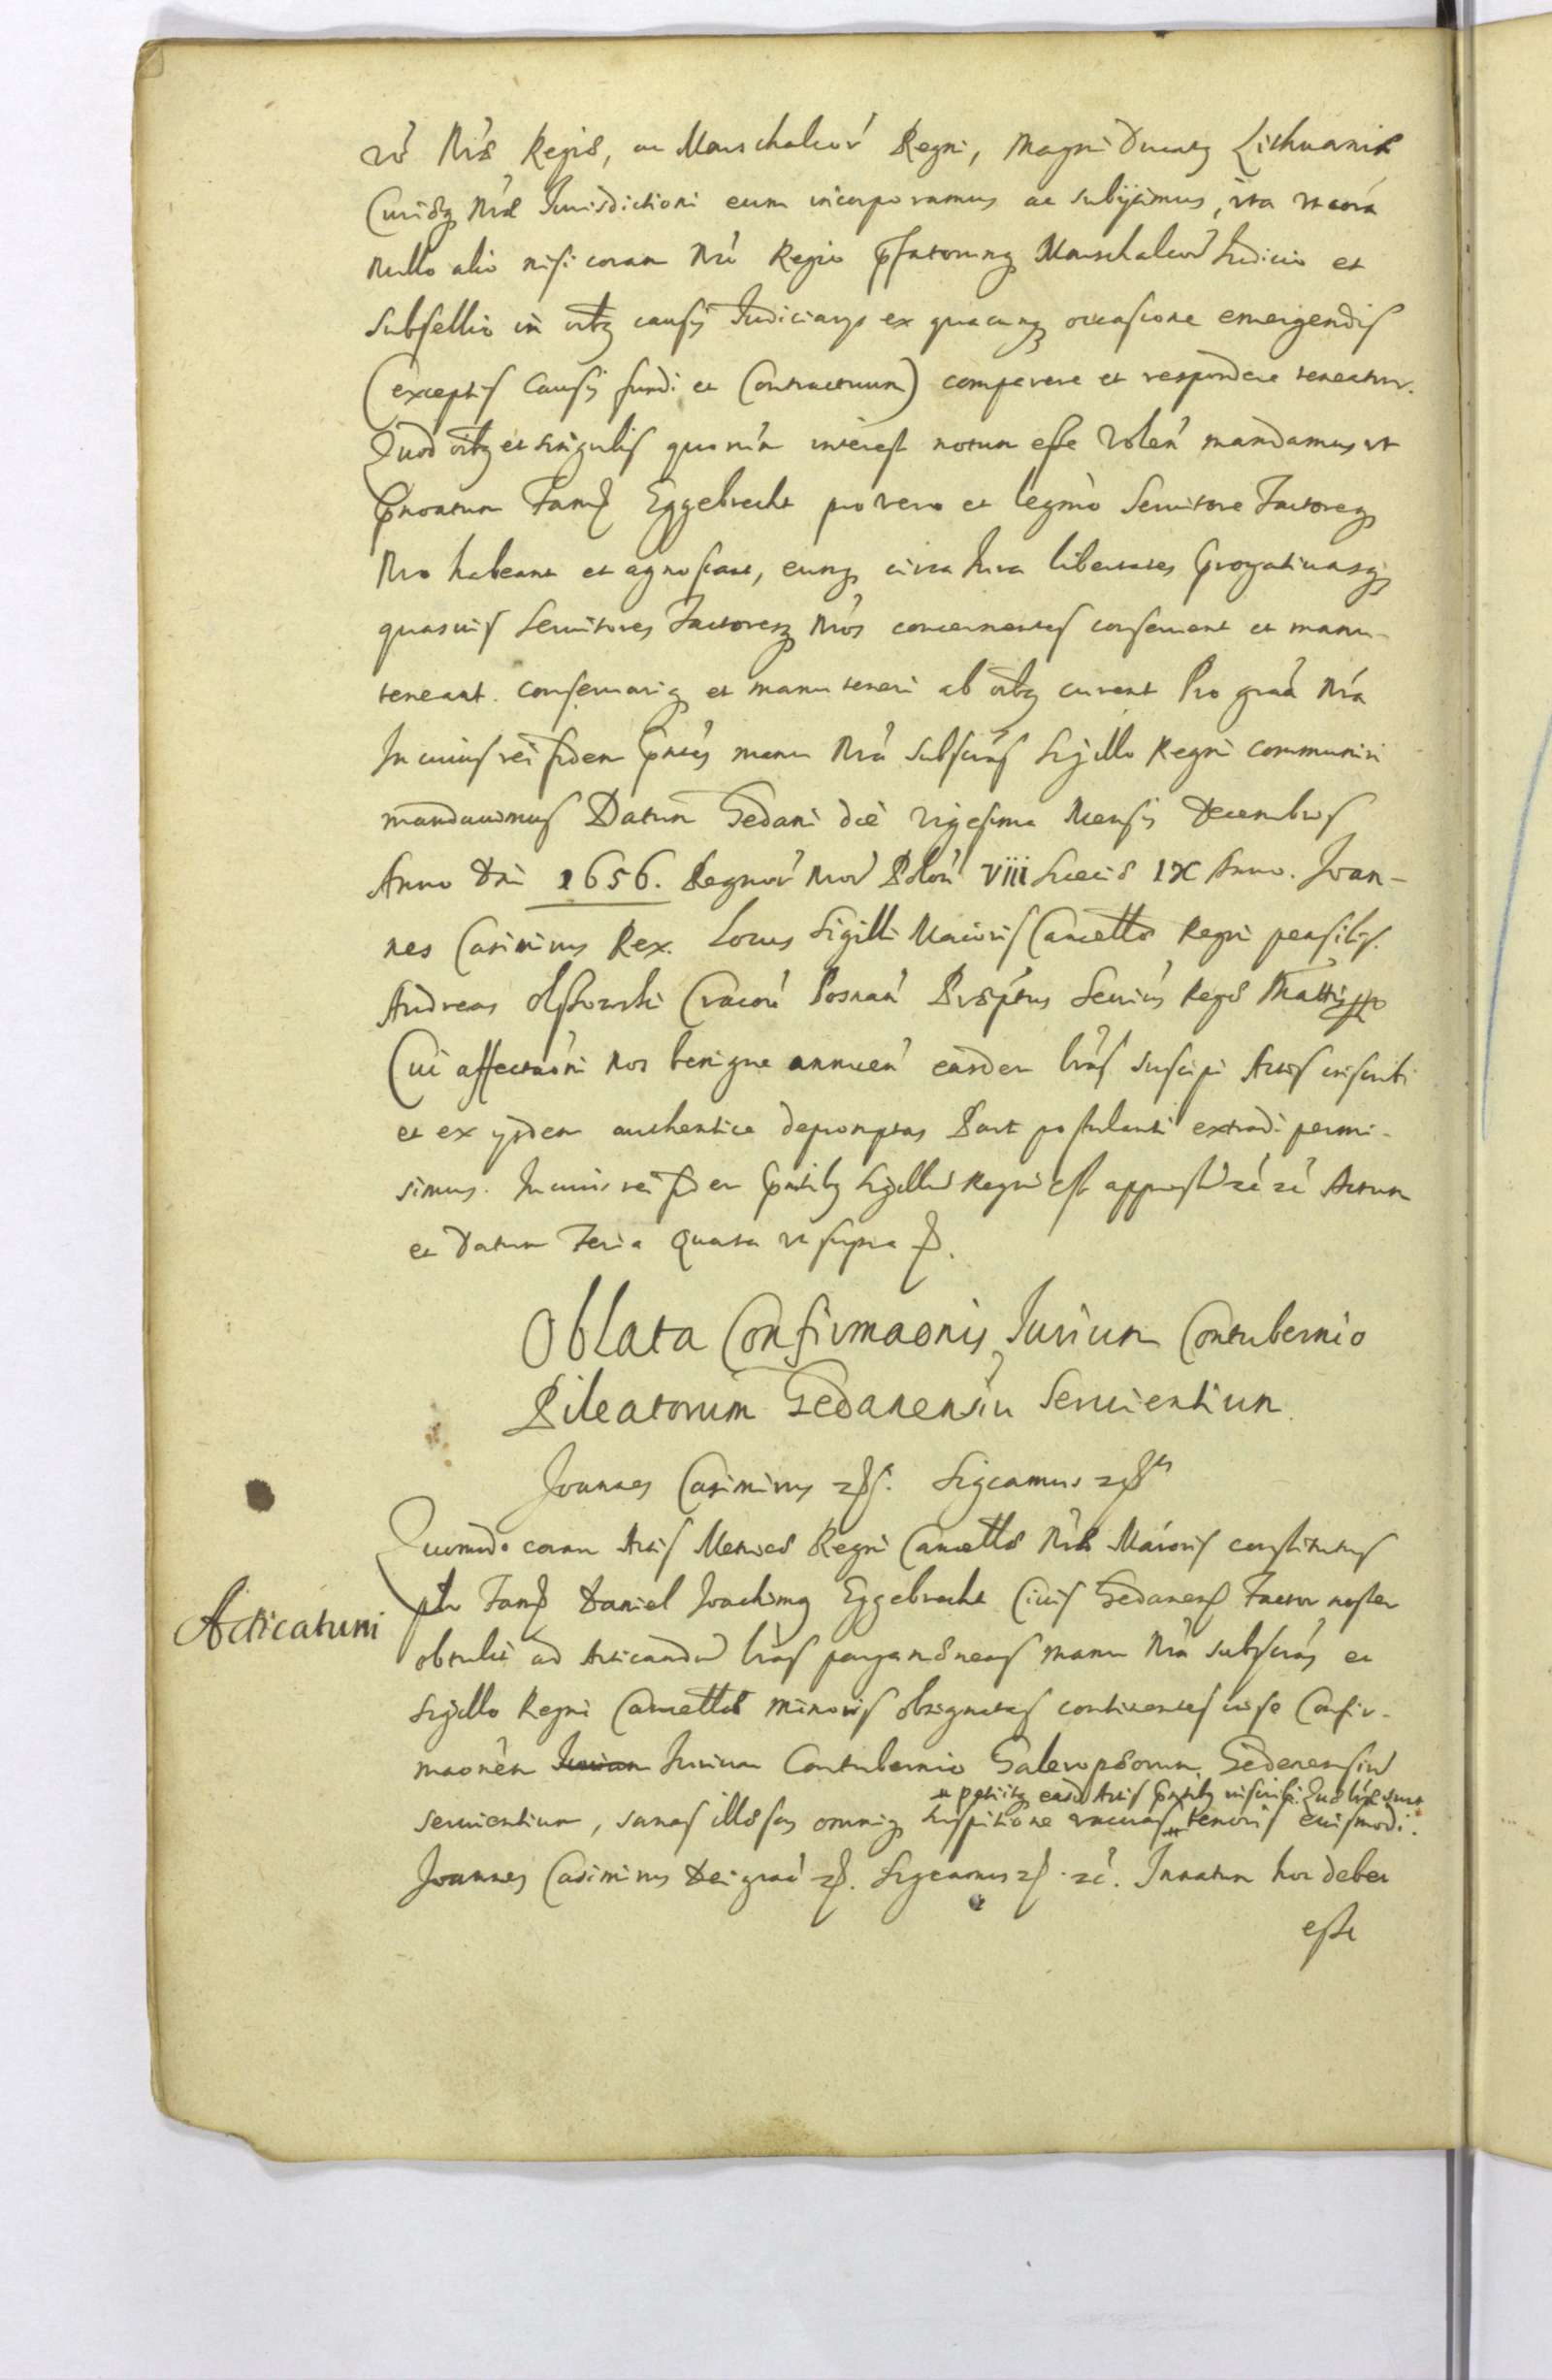 rū Nrae Regiae, ac Marschalcor' Regni, Magni Ducatq Lithuaniae
Curiaeq Nrae Jurisdictioni eum incorporamus ac subijcimus, ita ut corā
nullo alio nisi coram Nro Regio pfatorumq Marschalcor' Judicio et
Subsellio in oibq causis Judiciarijs ex quacunq occasione emergendis
(exceptis causis fundi et Contractuum) comparere et respondere teneatur.
Quod oibq et singulis quorum interest notum esse volen' mandamus ut
pnoatum Fam Eggebrecht pro vero et legmo Servitore Factoreq
Nro habeant et agnoscant, eumq circa Jura libertates progativasq
quasvis Servitores Factoresq Nros concernentes conservent et manu-
teneant. conservariq et manuteneri ab oibq curent Pro graa Nra
In cuius rei fidem pntes manu Nra subscras Sigillo Regni communiri
mandavimus Datum Gedani die vigesima Mensis Decembris
Anno Dni 1656. Regnor' Nror' Polon' VIII Sueciae IX Anno. Joan-
nes Casimirus Rex. Locus Sigilli Maioris Cancellae Regni pensilis.
Andreas Olszowski Cracov' Posnan' Praeptus Secrius Regiae Mattis
Cui affectaoni nos benigne annuen' easdem lras suscipi Actis inscribi
et ex ijsdem authentice depromptas Parti postulanti extradi permi-
simus. In cuius rei fidem pntibq Sigillu Regni est appressu' &c' &c' Actum
et Datum Feria Quarta ut supra
Oblata Confirmaonis Jurium Contubernio
Pileatorum Gedanensiu Servientium
Joannes Casimirus &c. Sigcamus &c
Quomodo coram Actis Metrices Regni Cancellae Nrae Maioris constitutus
ptr Fam Daniel Joachimq Eggebrecht Civis Gedanens Factor noster
obtulit ad Acticandu' lras pargameneas manu Nra subscras et
Acticatum
Sigillo Regni Cancellae minoris obsignatas continentes in se Confir-
maonem Jurium Jurium Contubernio Galeropaeorum Gedanensiu'
petiitq easd' Actis pntibq inscribi. Quae lrae sunt
servientium, sanas illaesas omniq suspitione vacuas tenoris eiusmodi.
Joannes Casimirus Dei graa &c. Sigcamus &c. &c'. Innatum hoc debet
esse